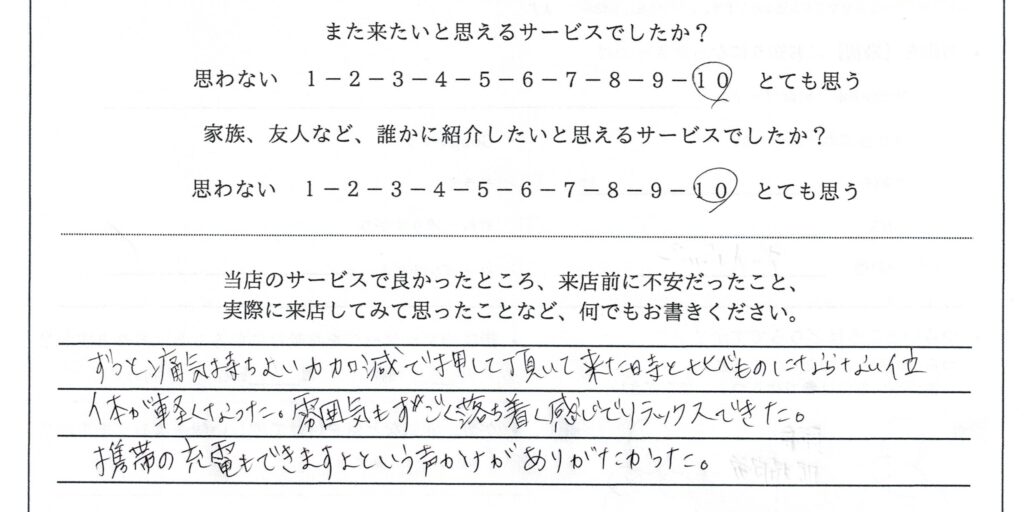 また来たいと思えるサービスでしたか？
思わない 1－2－3－4－5－6－7－8－9－10 とても思う
家族、友人など、誰かに紹介したいと思えるサービスでしたか？
思わない 1－2－3－4－5－6－7－8－9－10 とても思う
当店のサービスで良かったところ、来店前に不安だったこと、
実際に来店してみて思ったことなど、何でもお書きください。
ずっと痛気持ちよい力加減で押して頂いて来た時と比べものにならない位
体が軽くなった。雰囲気もすごく落ち着く感じでリラックスできた。
携帯の充電もできますよという声かけがありがたかった。